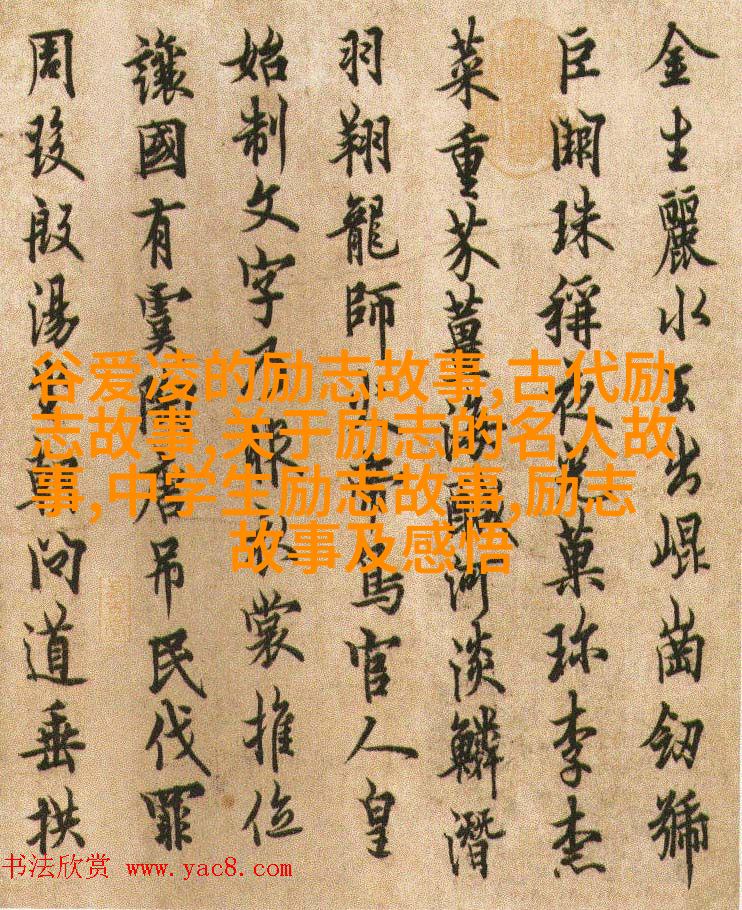 金生麗水玉出崐崗劒號
巨闕珠稱夜光菓珎李柰
菜重芥薑海醎河淡鱗潛
羽翔龍師火帝鳥官人皇
始制文字乃服衣裳推位
讓國有虞陶唐吊民伐罪
周發殷湯坐朝問道垂拱
谷爱凌的励志故事,古代励
志故事,关于励志的名人故
事,中学生励志故事,励志
故事及感悟
书法欣赏 www.yac8.com